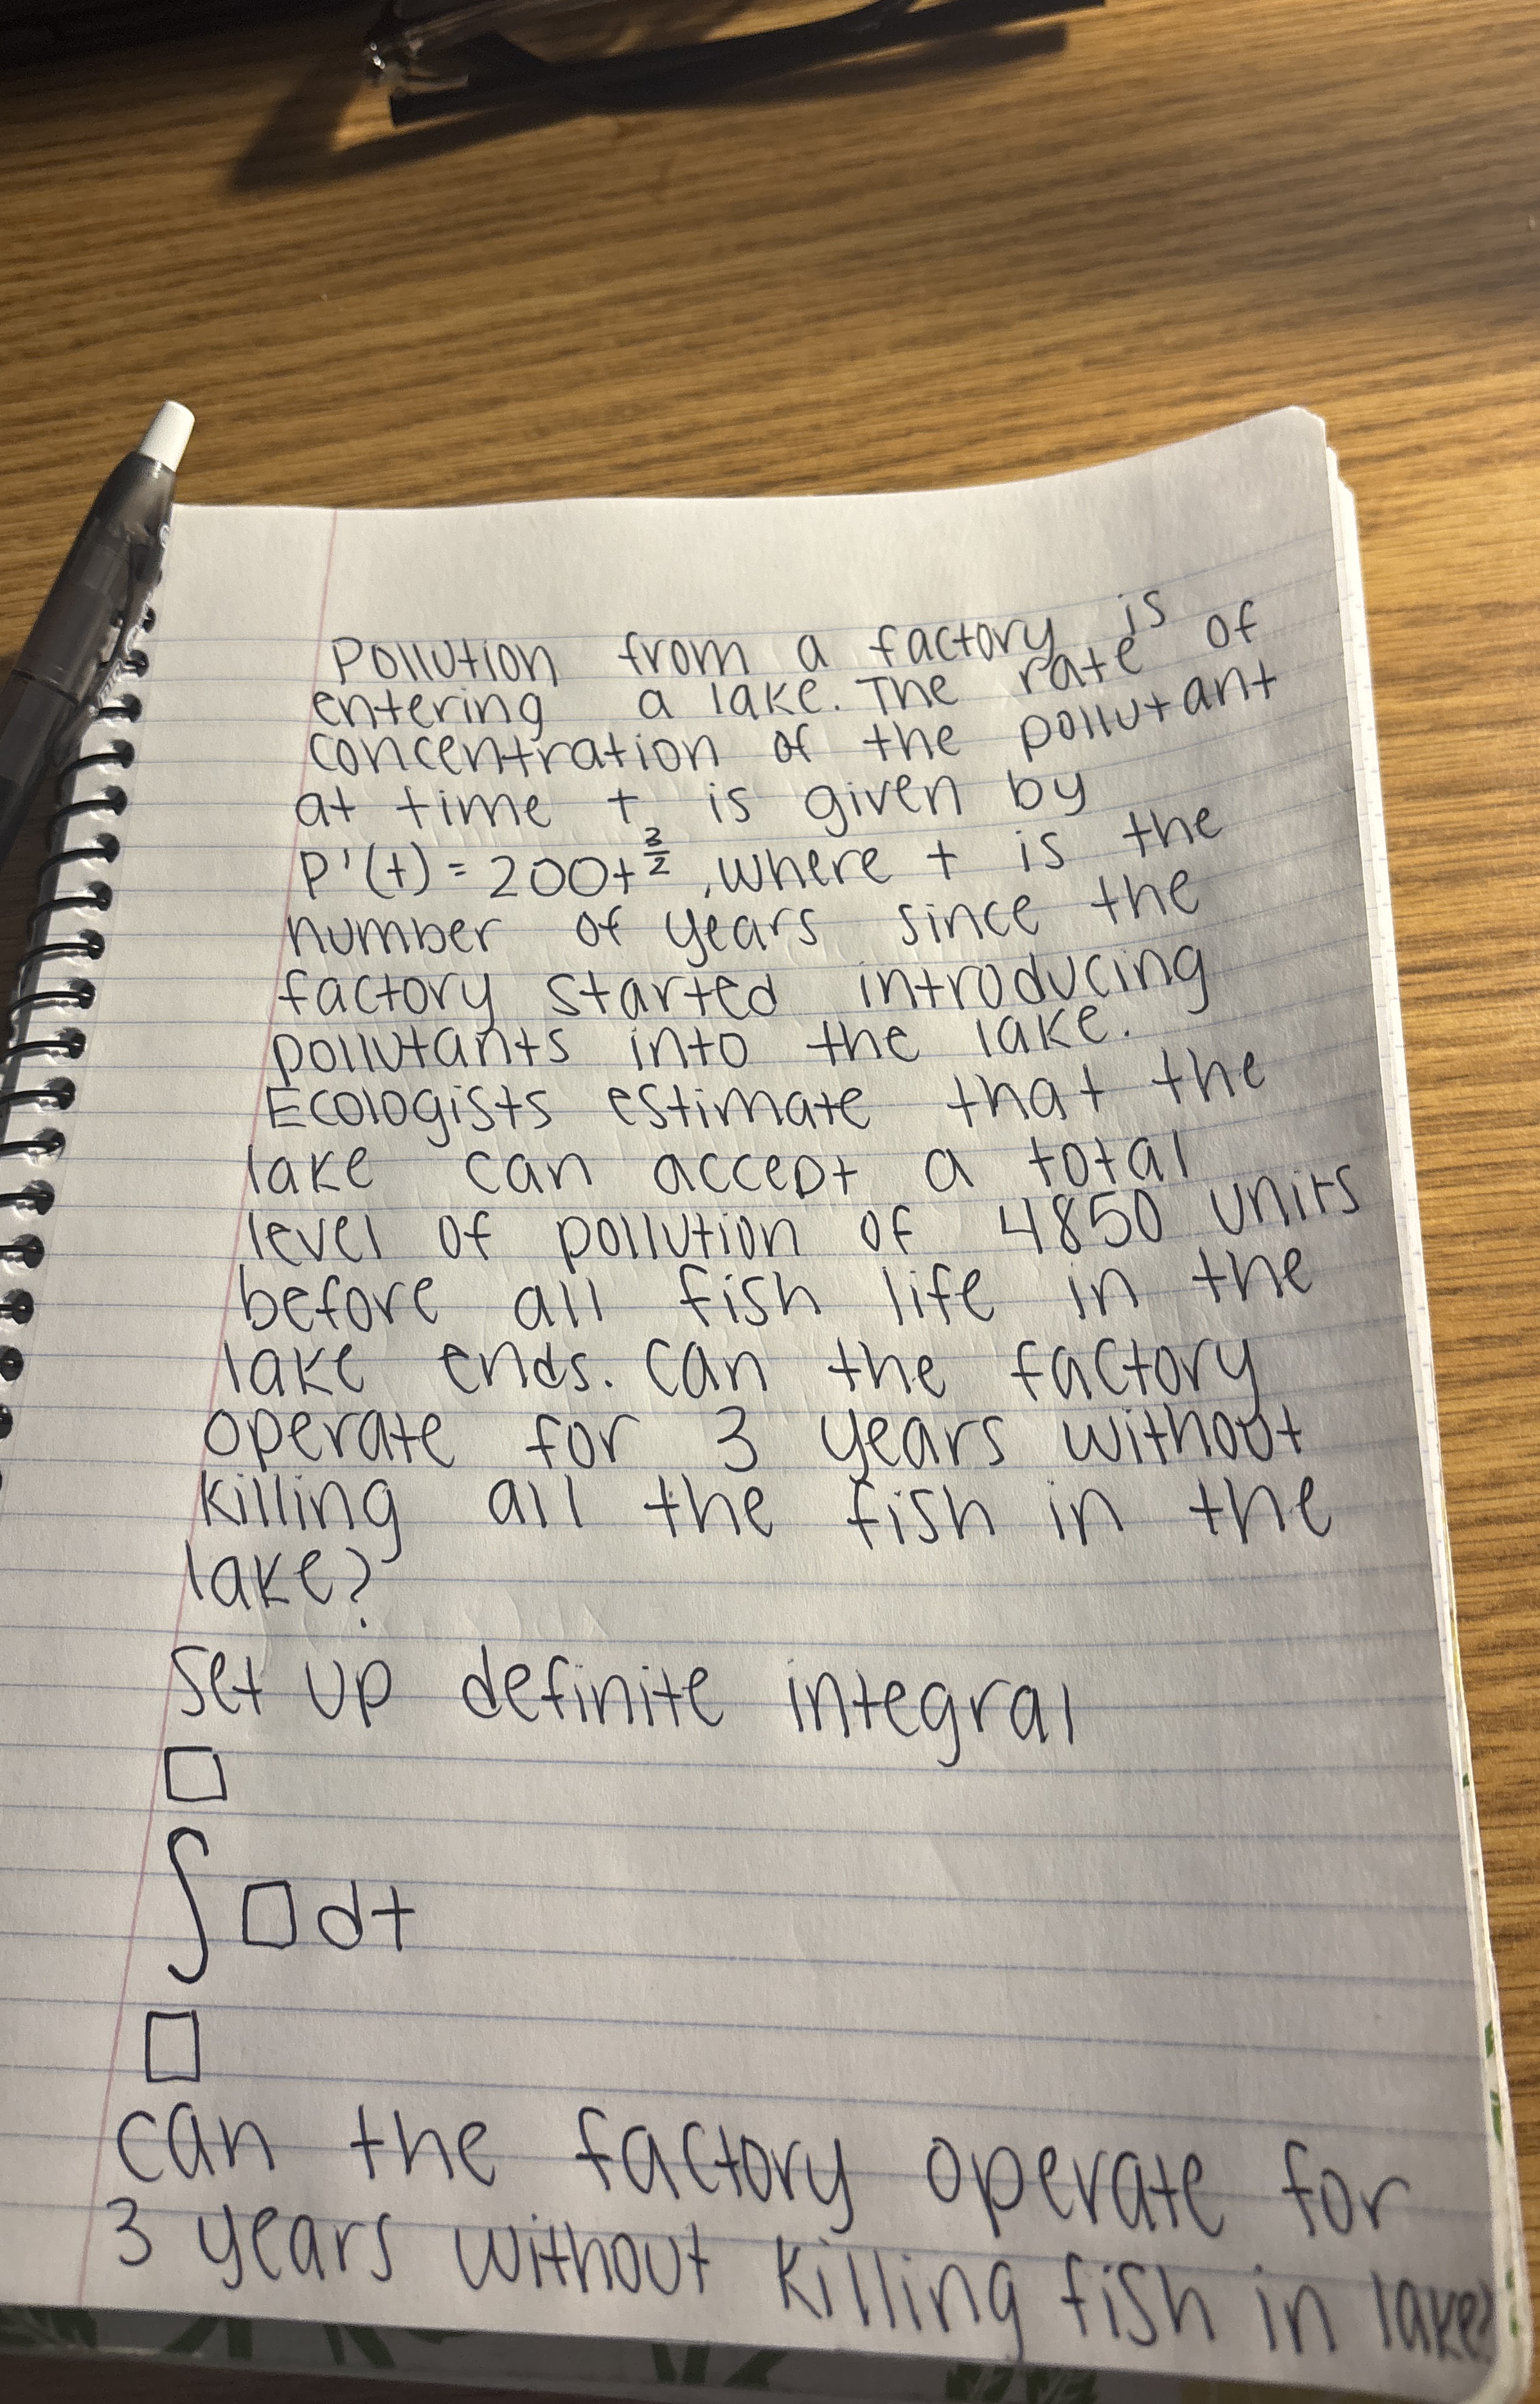 Pollution from a factory is
entering a lake. The rate of
concentration of the pollutant
at time t is given by
P'(t) = 200t^3/2, where t is the
number of years since the
factory started introducing
pollutants into the lake.
Ecologists estimate that the
lake can accept a total
level of pollution of 4850 units
before all fish life in the
lake ends. Can the factory
operate for 3 years without
killing all the fish in the
lake?
Set up definite integral
□
∫ □ dt
□
can the factory operate for
3 years without killing fish in lake?